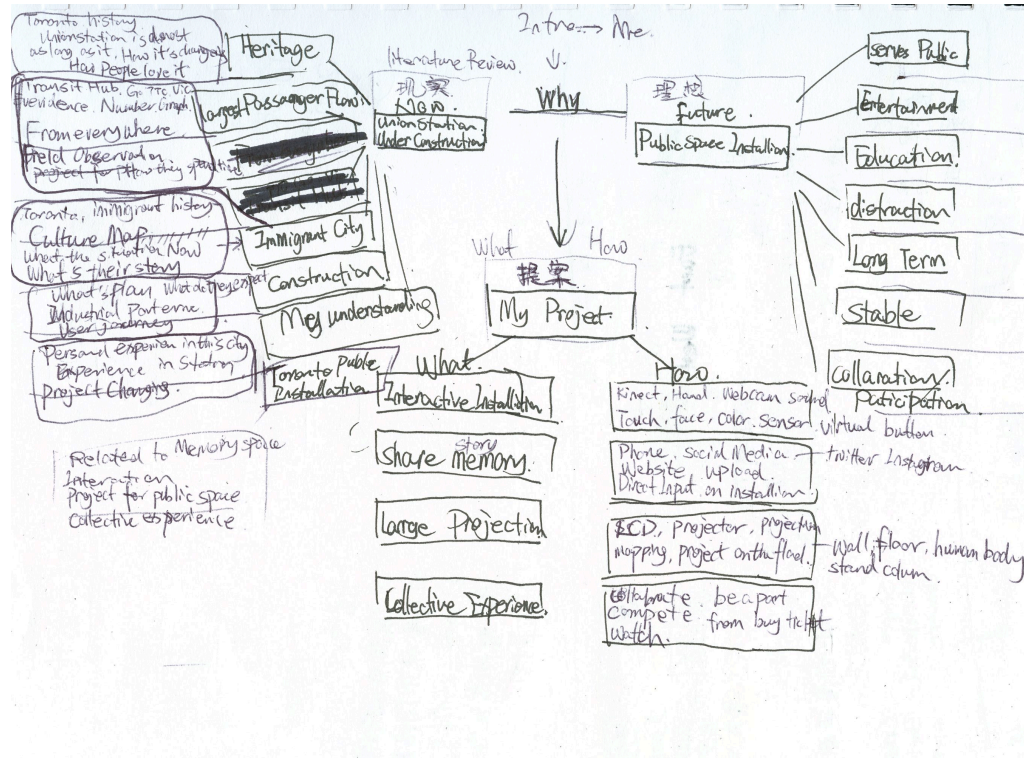 Intro → Me
Toronto history
Unionstation is almost
as long as it, How it's changed
Has People love it
Heritage
Transit Hub, Go TTC Via
Evevidence. Number Graph.
From everywhere.
Field Observation
project for
Largest Passanger Flow
Toronto, immigrant history
Culture Map
What the situation Now
What's their story
Immigrant City
What's Plan What do they expect
Industrial
User journey
Construction
Personal experien in this city
Experience in Station
Project Changing.
My understanding
Toronto Public
Installation
Related to Memory space
Interaction
Project for public space
Collective experience
Literature Review.
现案
Now.
Union Station.
Under Construction
Why
理想
future.
Public Space Installion
serves Public
Entertainment
Education.
distraction
Long Term
Stable
Collaration.
Paticipation
What How
提案
My Project.
What.
Interactive Installation
story
share memory.
Large Projection
Collective Experience.
How.
Kinect, Hand. Webcam sound
Touch, face, color. sensor virtual button
Phone, social Media twitter Instagram
Website upload
Direct Input on installion
LCD, projector, projection
mapping, project on the
wall, floor, human body
stand colum.
Collaborate. be a part
Compete from buy ticket
Watch.